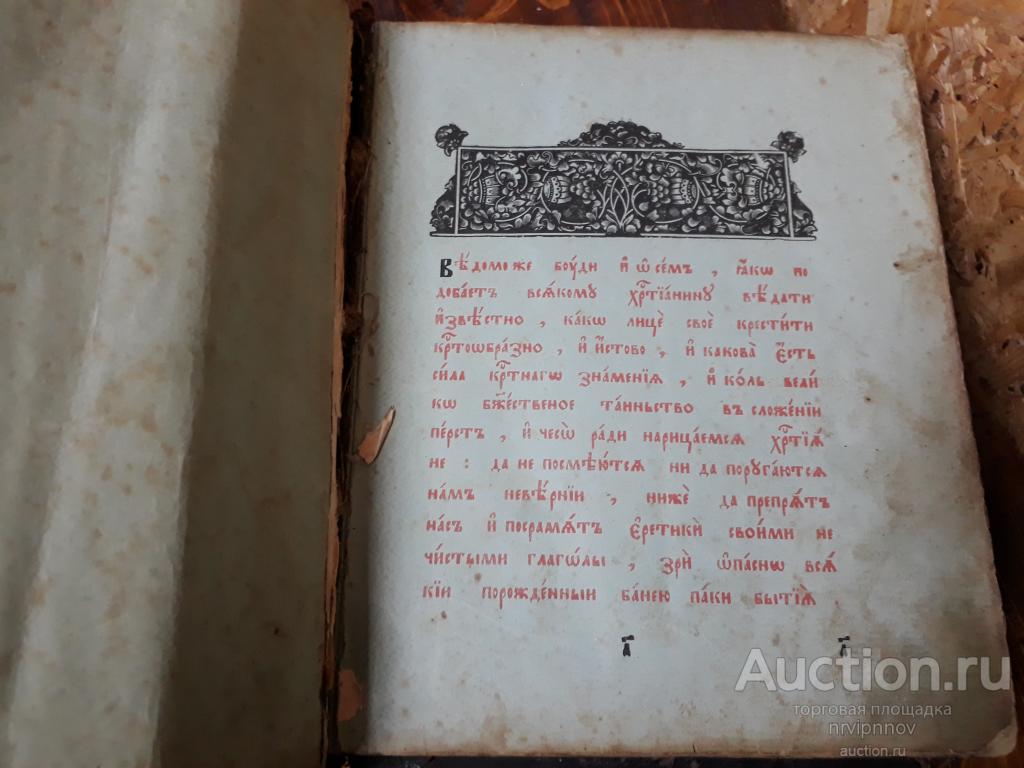 Вѣ́домо же боуди и҆ ѡ҆ се́мъ , ꙗ҆́кѡ по
добаетъ вся́кому хрⷭ҇тїа́нину вѣ́дати
и҆звѣ́стно , ка́кѡ лицѐ своѐ крести́ти
крⷭ҇тоѡбра́зно , и҆ и҆́стово , и҆ какова̀ є҆́сть
си́ла крⷭ҇тнагѡ зна́менїѧ , и҆ ко́ль вели
кѡ бж҇е́ственое та́иньство въ сложе́нїи
пе́рстъ , и҆ чесѡ̀ ра́ди нарица́емсѧ хрⷭ҇тїѧ́
не : да не посмѣю́тсѧ ни да поруга́ютсѧ
на́мъ невѣ́рнїи , нижѐ да препрѧ́тъ
на́съ и҆ посрамѧ́тъ є҆ретикѝ свои́ми не
чи́стыми глаго́лы , зрѝ ѡ҆па́снѡ всѧ́
кїи порожде́нныи ба́нею па́ки бытїѧ̀
г҃ г҃
Auction.ru
торговая площадка
nrvipnnov
auction.ru